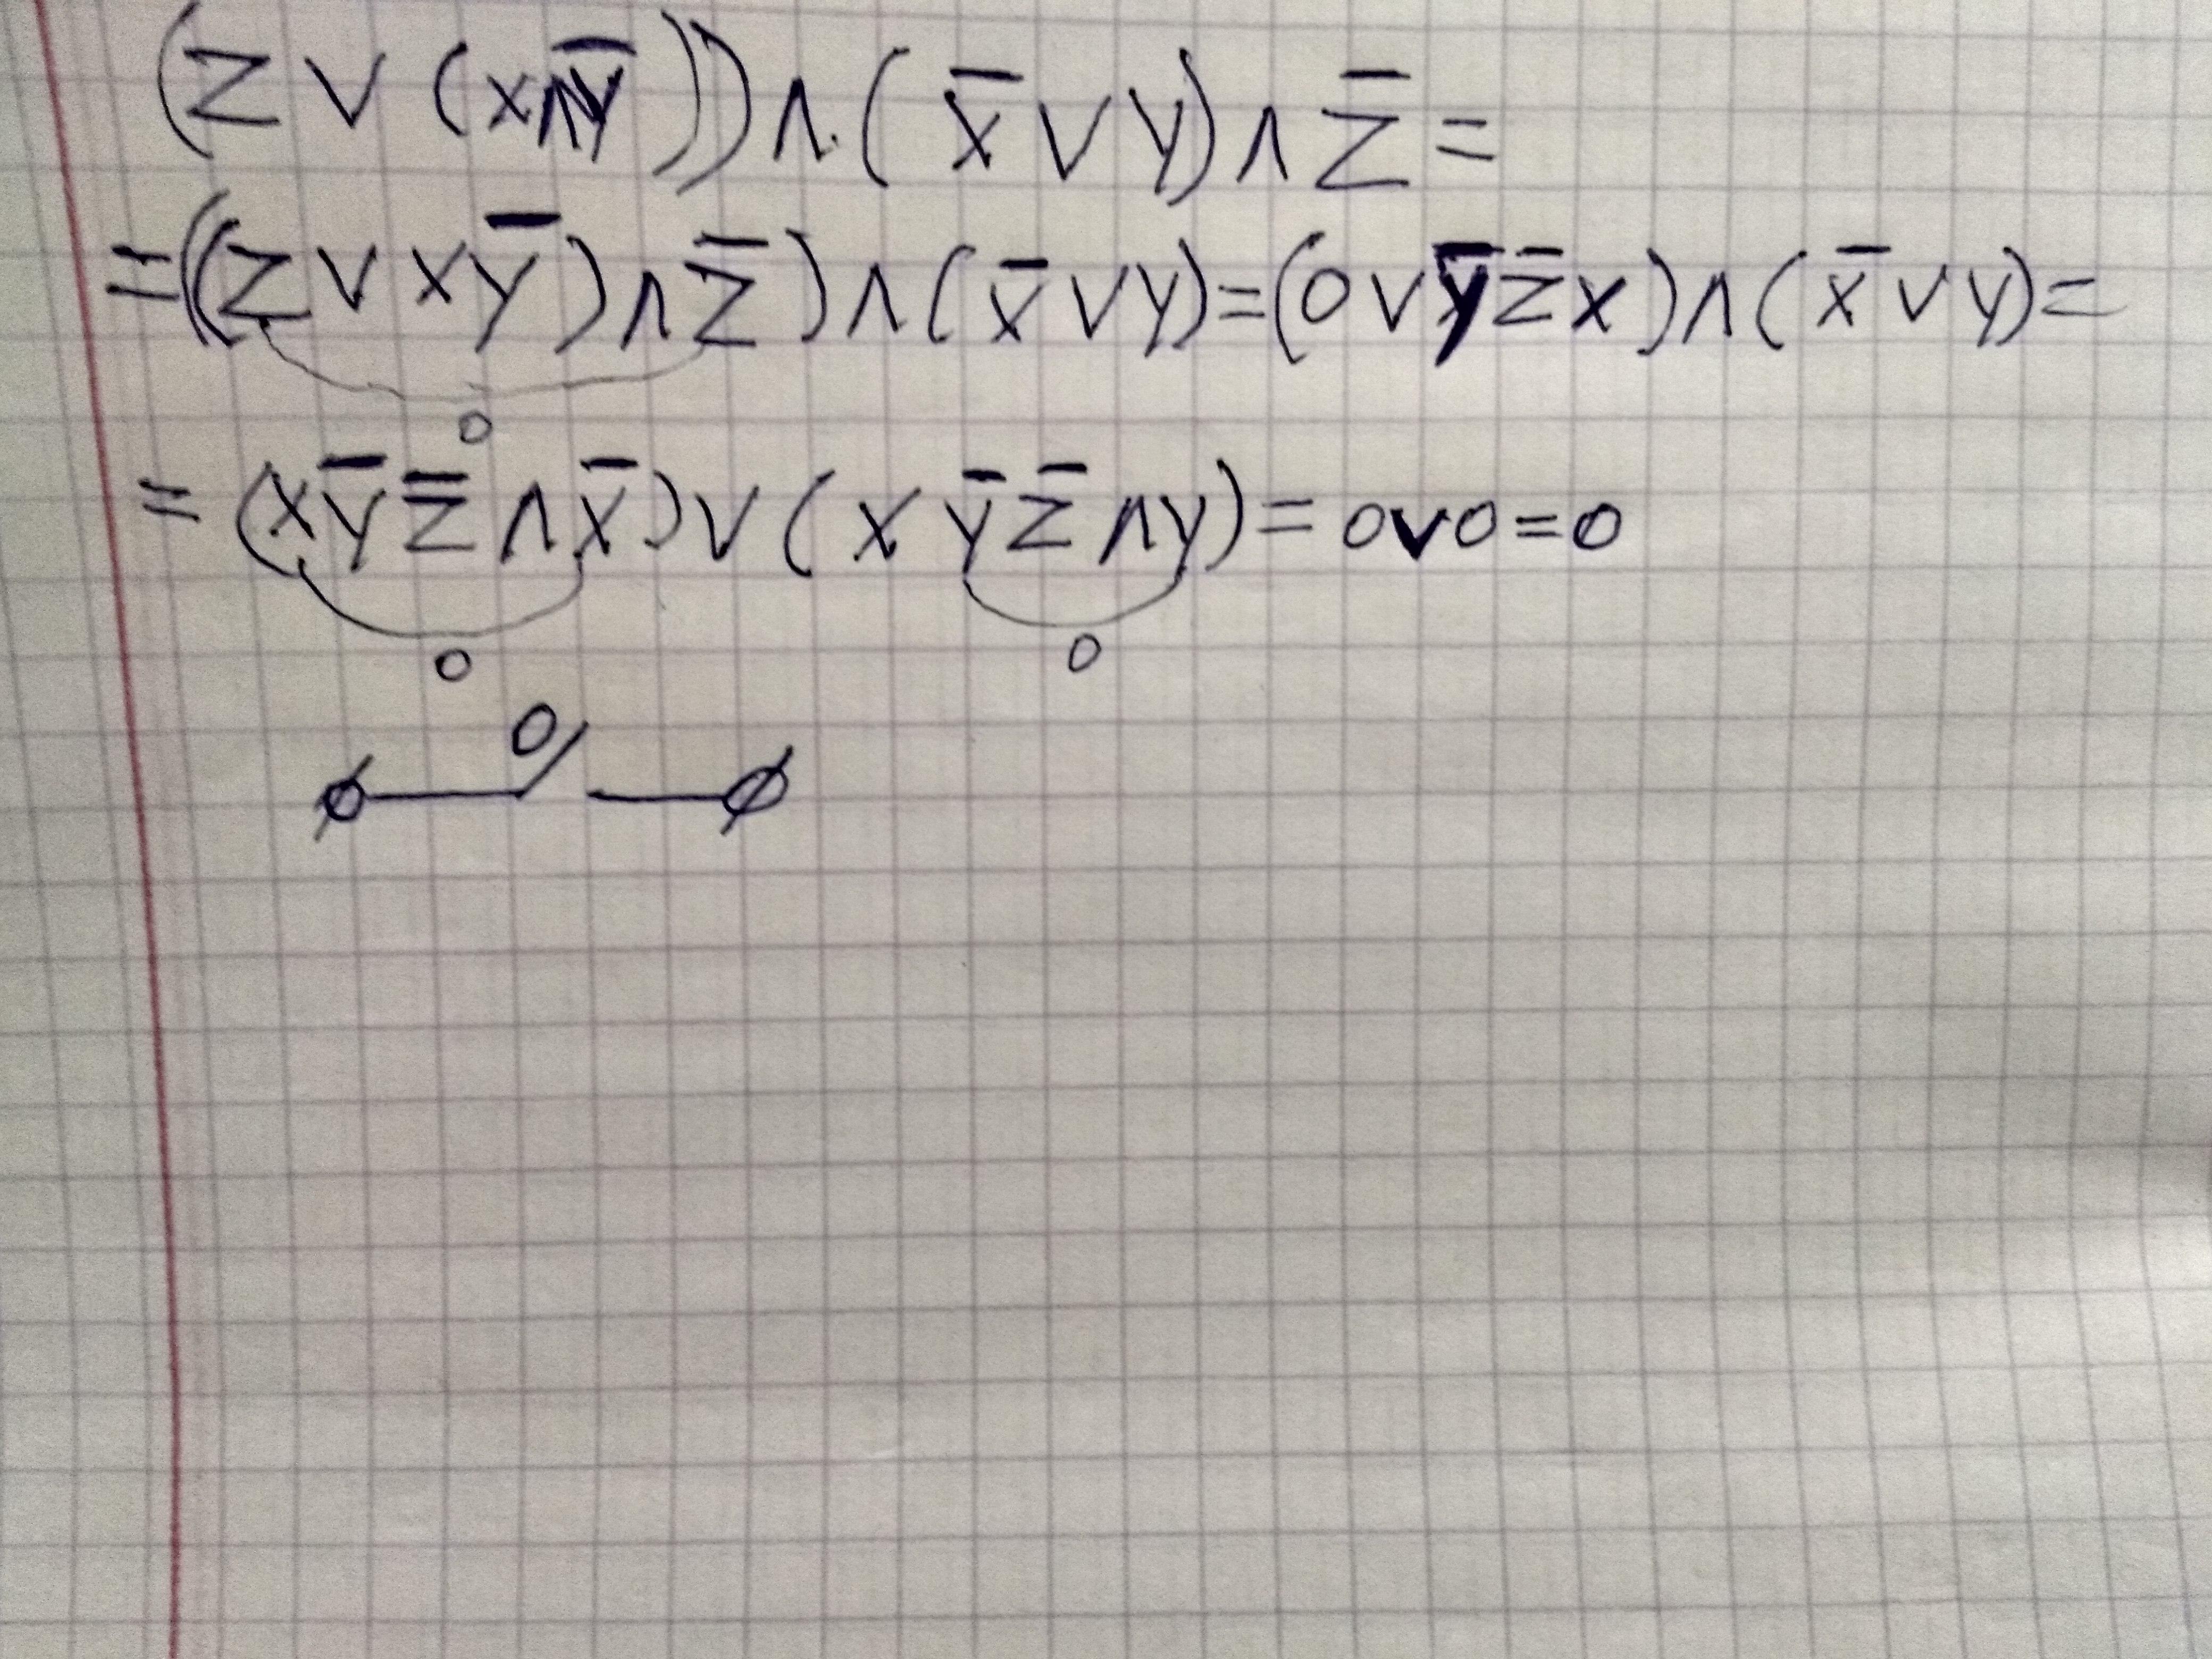 (Z ∨ (x∧y̅)) ∧ (x̅ ∨ y) ∧ z̅ =
= ((z ∨ xy̅) ∧ z̅) ∧ (x̅ ∨ y) = (0 ∨ y̅z̅x) ∧ (x̅ ∨ y) =
0
= (xy̅z̅ ∧ x̅) ∨ (xy̅z̅ ∧ y) = 0∨0=0
0 0
0